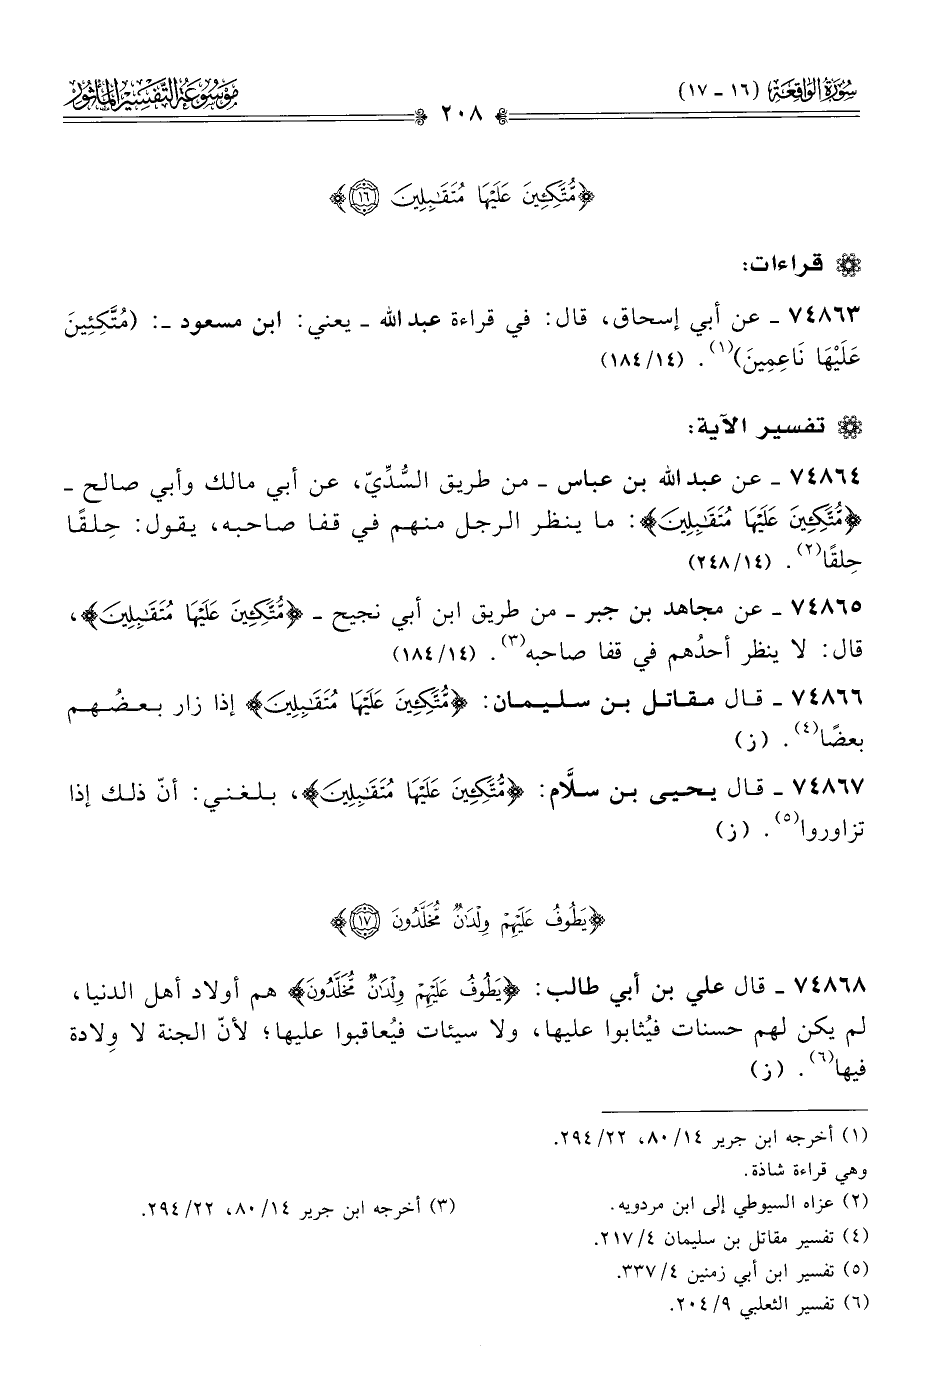 سُورَةُ الوَاقِعَة (١٦ - ١٧)
٢٠٨
مَوْسُوعَةُ التَّفْسِيرِ المَأْثُور
﴿مُّتَّكِـِٔينَ عَلَيْهَا مُتَقَـٰبِلِينَ ١٦﴾
قراءات:
٧٤٨٦٣ ـ عن أبي إسحاق، قال: في قراءة عبد الله ـ يعني: ابن مسعود ـ: (مُتَّكِئِينَ
عَلَيْهَا نَاعِمِينَ)(١). (١٨٤/١٤)
تفسير الآية:
٧٤٨٦٤ ـ عن عبد الله بن عباس ـ من طريق السُّدِّيّ، عن أبي مالك وأبي صالح ـ
﴿مُّتَّكِـِٔينَ عَلَيْهَا مُتَقَـٰبِلِينَ﴾: ما ينظر الرجل منهم في قفا صاحبه، يقول: حِلقًا
حِلقًا(٢). (٢٤٨/١٤)
٧٤٨٦٥ ـ عن مجاهد بن جبر ـ من طريق ابن أبي نجيح ـ ﴿مُّتَّكِـِٔينَ عَلَيْهَا مُتَقَـٰبِلِينَ﴾،
قال: لا ينظر أحدُهم في قفا صاحبه(٣). (١٨٤/١٤)
٧٤٨٦٦ ـ قال مقاتل بن سليمان: ﴿مُّتَّكِـِٔينَ عَلَيْهَا مُتَقَـٰبِلِينَ﴾ إذا زار بعضُهم
بعضًا(٤). (ز)
٧٤٨٦٧ ـ قال يحيى بن سلَّام: ﴿مُّتَّكِـِٔينَ عَلَيْهَا مُتَقَـٰبِلِينَ﴾، بلغني: أنّ ذلك إذا
تزاوروا(٥). (ز)
﴿يَطُوفُ عَلَيْهِمْ وِلْدَٰنٌ مُّخَلَّدُونَ ١٧﴾
٧٤٨٦٨ ـ قال علي بن أبي طالب: ﴿يَطُوفُ عَلَيْهِمْ وِلْدَٰنٌ مُّخَلَّدُونَ﴾ هم أولاد أهل الدنيا،
لم يكن لهم حسنات فيُثابوا عليها، ولا سيئات فيُعاقبوا عليها؛ لأنّ الجنة لا وِلادة
فيها(٦). (ز)
(١) أخرجه ابن جرير ١٤/ ٨٠، ٢٢/ ٢٩٤.
وهي قراءة شاذة.
(٢) عزاه السيوطي إلى ابن مردويه.
(٣) أخرجه ابن جرير ١٤/ ٨٠، ٢٢/ ٢٩٤.
(٤) تفسير مقاتل بن سليمان ٤/ ٢١٧.
(٥) تفسير ابن أبي زمنين ٤/ ٣٣٧.
(٦) تفسير الثعلبي ٩/ ٢٠٤.